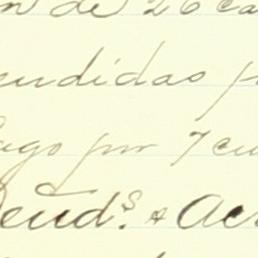 n de 26 ca
endidas p
ago por 7 cu
Deud.s & Acr